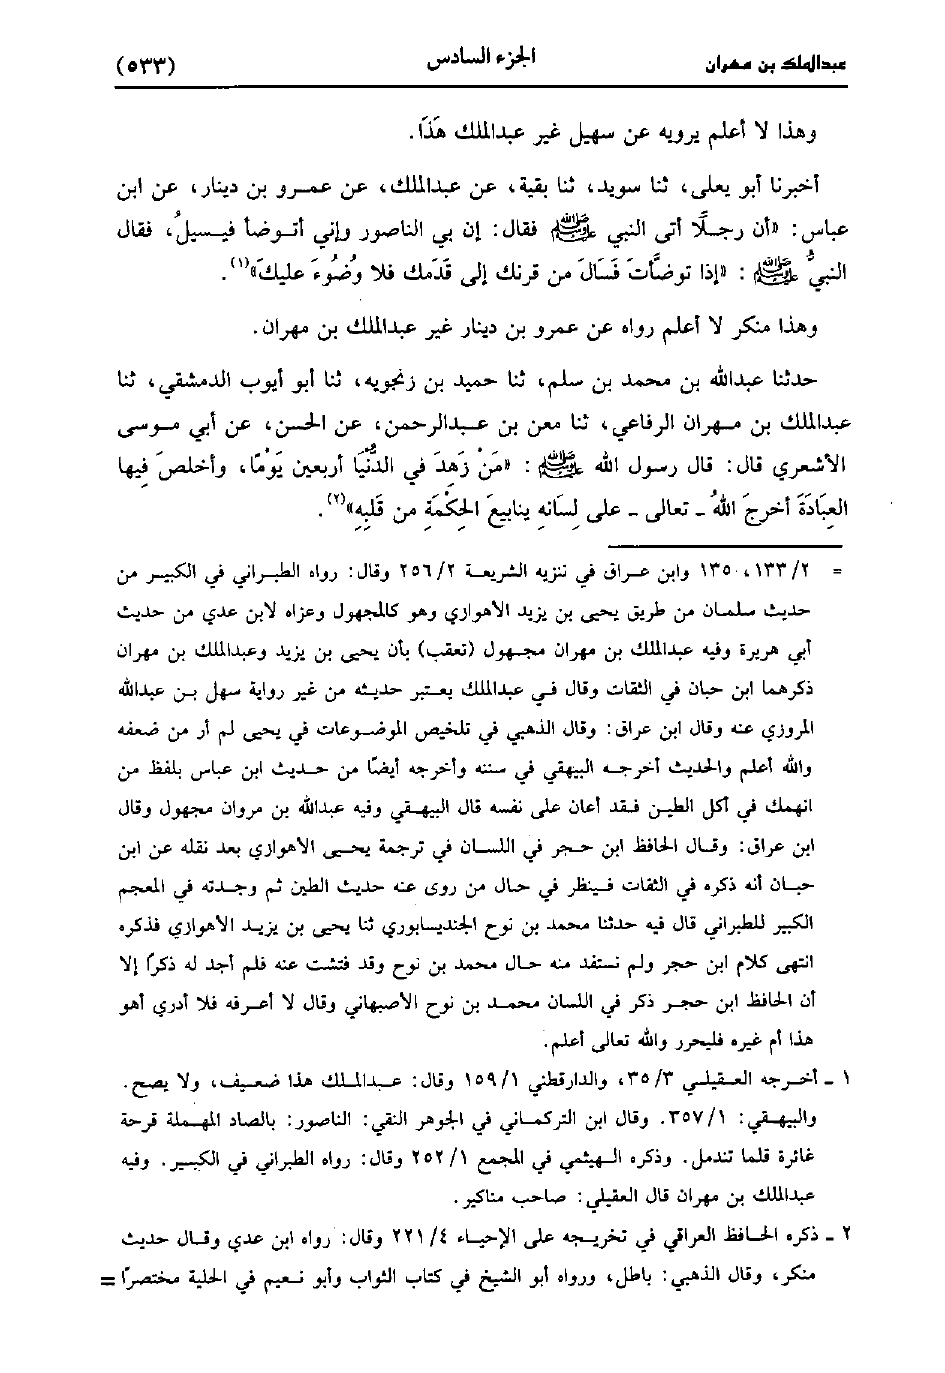 عبدالملك بن مهران
الجزء السادس
(٥٣٣)
وهذا لا أعلم يرويه عن سهيل غير عبدالملك هَذَا.
أخبرنا أبو يعلى، ثنا سويد، ثنا بقية، عن عبدالملك، عن عمرو بن دينار، عن ابن
عباس: «أن رجلًا أتى النبي ﷺ فقال: إن بي الناصور وإني أتوضأ فيسيلُ، فقال
النبيُّ ﷺ: «إذا توضَّأتَ فَسَالَ من قرنك إلى قَدَمك فلا وُضُوءَ عليكَ»(١).
وهذا منكر لا أعلم رواه عن عمرو بن دينار غير عبدالملك بن مهران.
حدثنا عبدالله بن محمد بن سلم، ثنا حميد بن زنجويه، ثنا أبو أيوب الدمشقي، ثنا
عبدالملك بن مهران الرفاعي، ثنا معن بن عبدالرحمن، عن الحسن، عن أبي موسى
الأشعري قال: قال رسول الله ﷺ: «مَنْ زَهِدَ في الدُّنْيَا أربعين يَوْمًا، وأخلصَ فِيها
العِبَادَةَ أخرجَ اللهُ ـ تعالى ـ على لِسَانِهِ ينابيعَ الحِكْمَةِ من قَلبِهِ»(٢).
= ١٣٣/٢، ١٣٥ وابن عراق في تنزيه الشريعة ٢٥٦/٢ وقال: رواه الطبراني في الكبير من
حديث سلمان من طريق يحيى بن يزيد الأهوازي وهو كالمجهول وعزاه لابن عدي من حديث
أبي هريرة وفيه عبدالملك بن مهران مجهول (تعقب) بأن يحيى بن يزيد وعبدالملك بن مهران
ذكرهما ابن حبان في الثقات وقال في عبدالملك يعتبر حديثه من غير رواية سهل بن عبدالله
المروزي عنه وقال ابن عراق: وقال الذهبي في تلخيص الموضوعات في يحيى لم أر من ضعفه
والله أعلم والحديث أخرجه البيهقي في سننه وأخرجه أيضًا من حديث ابن عباس بلفظ من
انهمك في أكل الطين فقد أعان على نفسه قال البيهقي وفيه عبدالله بن مروان مجهول وقال
ابن عراق: وقال الحافظ ابن حجر في اللسان في ترجمة يحيى الأهوازي بعد نقله عن ابن
حبان أنه ذكره في الثقات فينظر في حال من روى عنه حديث الطين ثم وجدته في المعجم
الكبير للطبراني قال فيه حدثنا محمد بن نوح الجنديسابوري ثنا يحيى بن يزيد الأهوازي فذكره
انتهى كلام ابن حجر ولم نستفد منه حال محمد بن نوح وقد فتشت عنه فلم أجد له ذكرًا إلا
أن الحافظ ابن حجر ذكر في اللسان محمد بن نوح الأصبهاني وقال لا أعرفه فلا أدري أهو
هذا أم غيره فليحرر والله تعالى أعلم.
١ ـ أخرجه العقيلي ٣٥/٣، والدارقطني ١٥٩/١ وقال: عبدالملك هذا ضعيف، ولا يصح.
والبيهقي: ٣٥٧/١. وقال ابن التركماني في الجوهر النقي: الناصور: بالصاد المهملة قرحة
غائرة قلما تندمل. وذكره الهيثمي في المجمع ٢٥٢/١ وقال: رواه الطبراني في الكبير. وفيه
عبدالملك بن مهران قال العقيلي: صاحب مناكير.
٢ ـ ذكره الحافظ العراقي في تخريجه على الإحياء ٢٢١/٤ وقال: رواه ابن عدي وقال حديث
منكر، وقال الذهبي: باطل، ورواه أبو الشيخ في كتاب الثواب وأبو نعيم في الحلية مختصرًا =